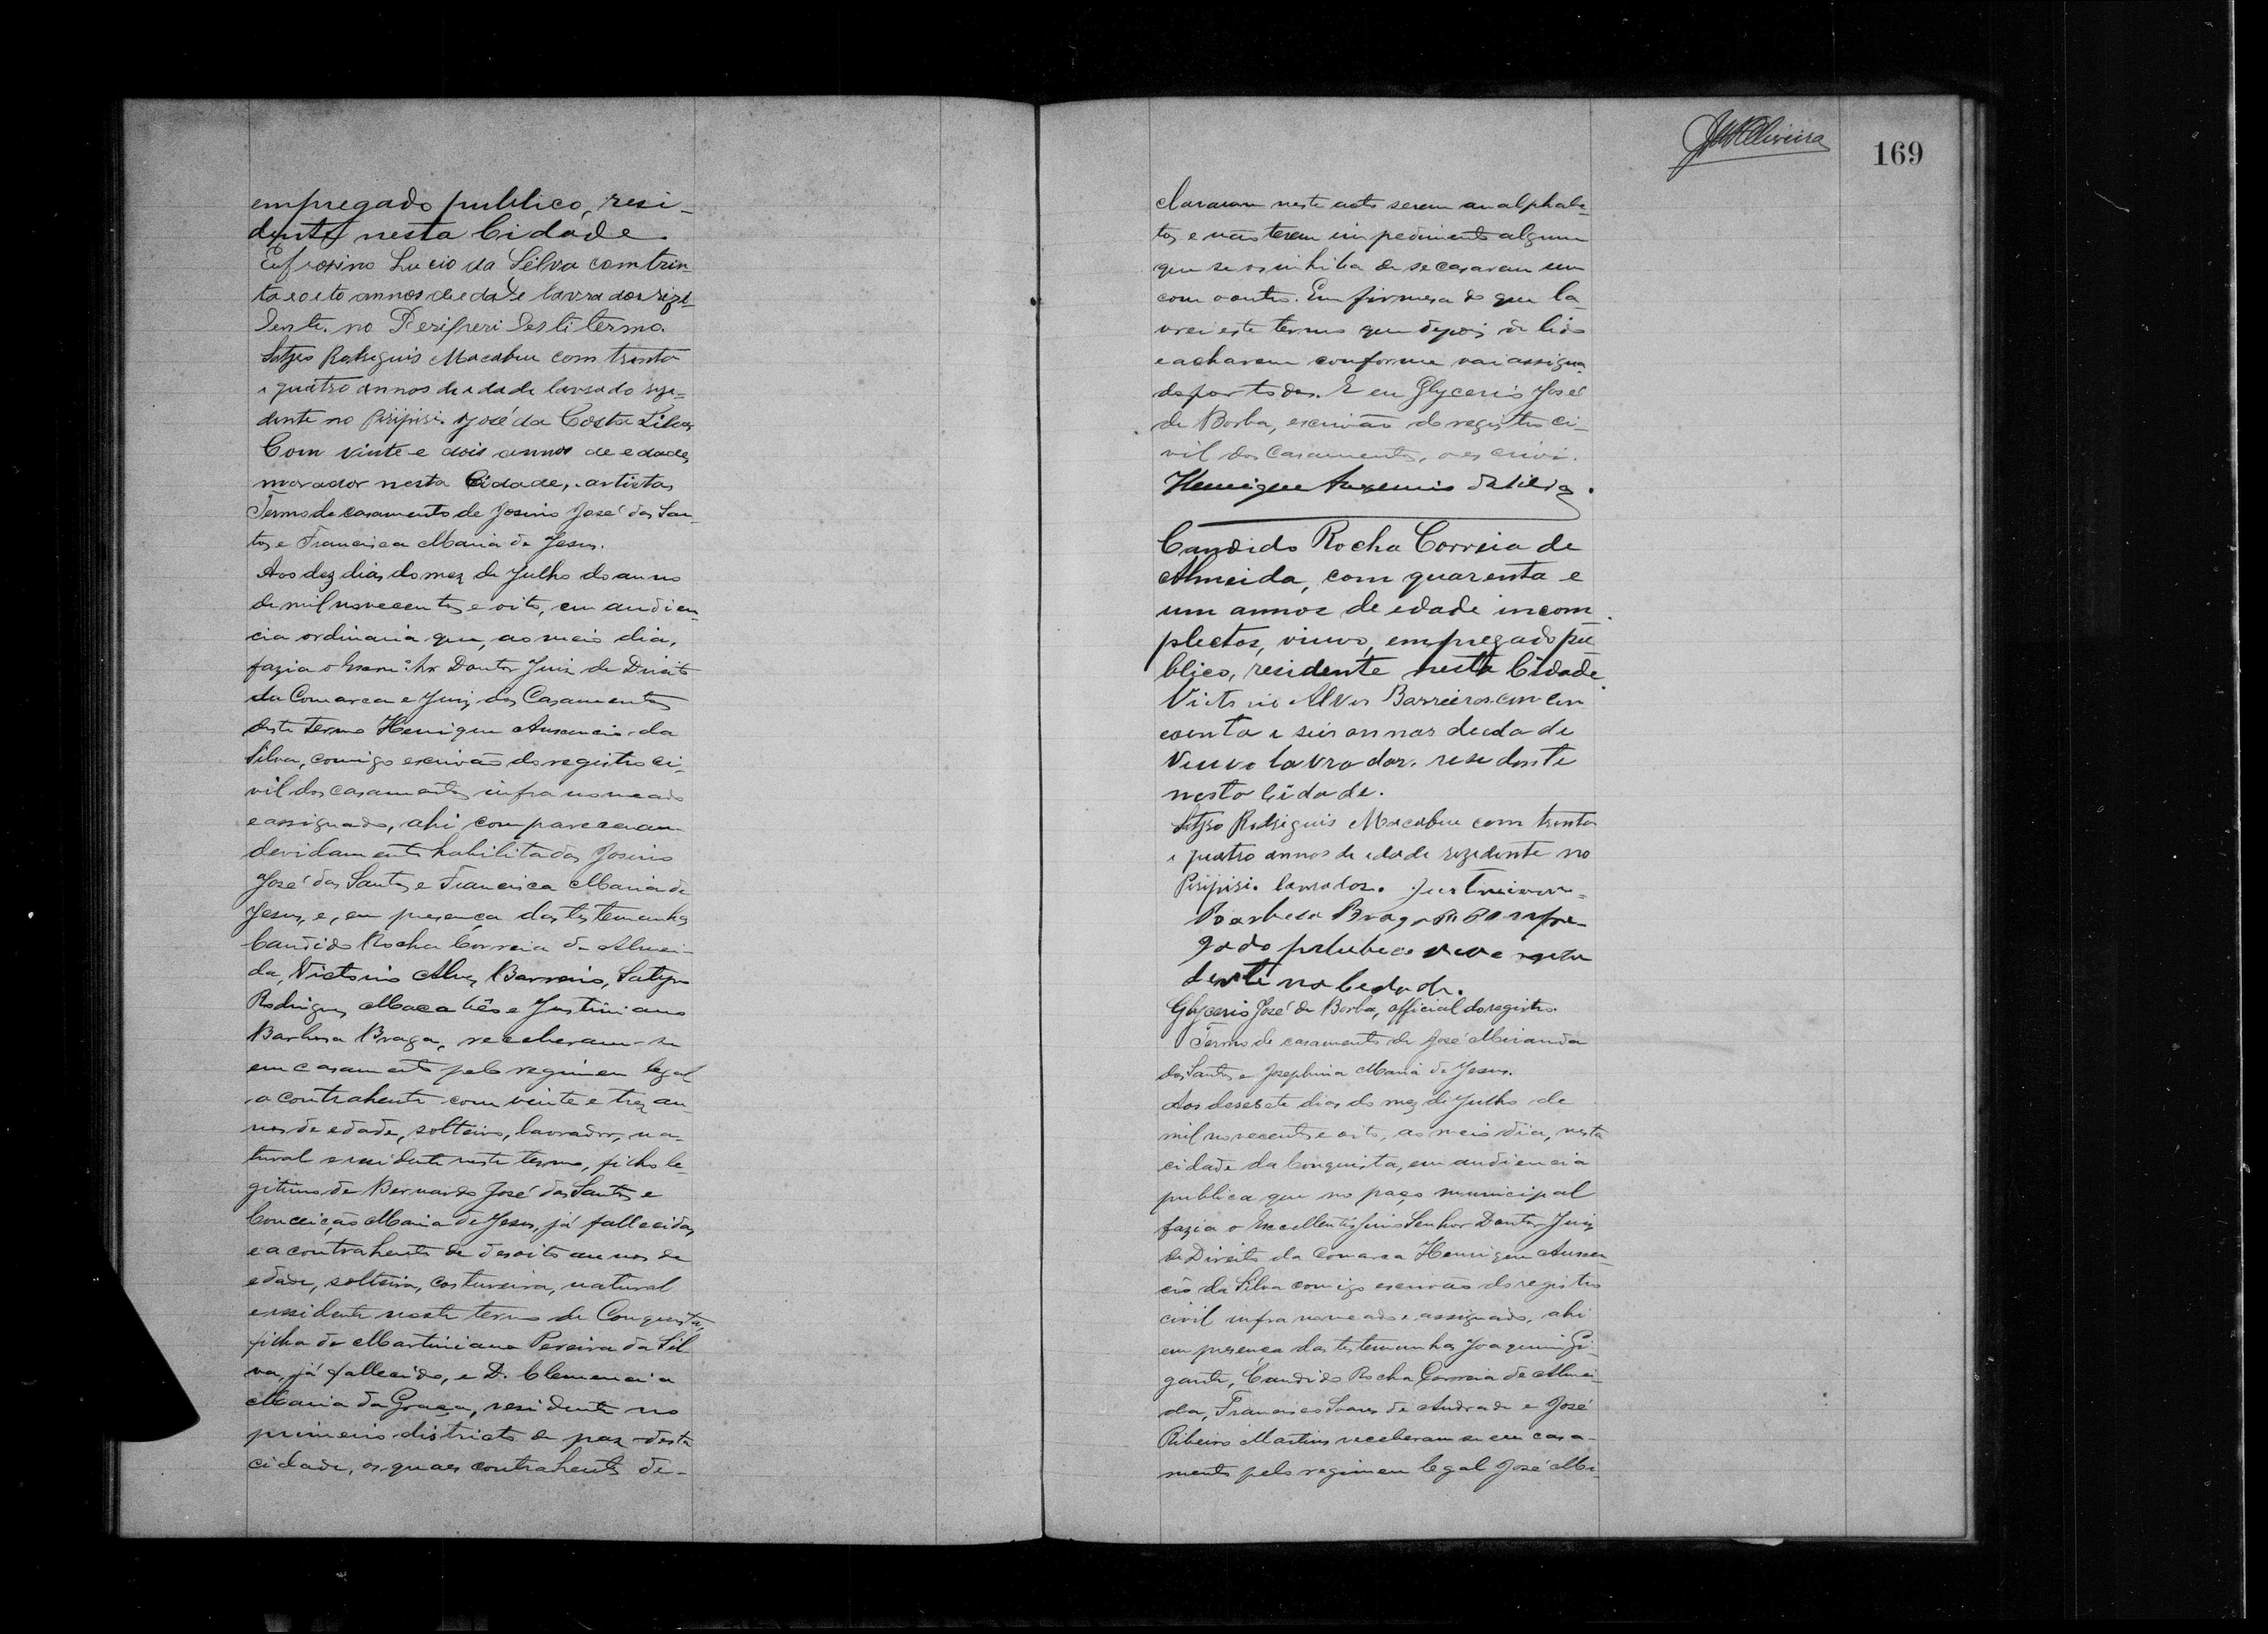 empregado publico, resi-
dente nesta Cidade.
Eufrosino Lucio da Silva com trin-
ta e oito annos de edade lavrador rize-
dente. no Periperi deste termo.
Satyro Rodriguis Macabeu com trinta
e quatro annos de idade lavrado reze-
dente no Piripiri. José da Costa Lilvas
Com vinte e dois annos de edades
morador nesta Cidade, artistas
Termo de casamento de Josino José dos San-
tos e Francisca Maria de Jesus.
Aos dez dias do mez de Julho do anno
de mil novecentos e oito, em audien-
cia ordinaria que, ao meio dia,
fazia o Exmo. Snr. Doutor Juiz de Direito
da Comarca e Juiz dos Casamentos
deste termo Henrique Ausencio da
Silva, comigo escrivão do registro ci-
vil dos casamentos infra nomeado
e assignado, ahi compareceram
devidamente habilitados Josino
José dos Santos e Francisca Maria de
Jesus, e, em presença das testemunhas
Candido Rocha Correia de Almei-
da, Victorio Alves Barreiro, Satyro
Rodrigues Macabêo e Justiniano
Barbosa Braga, receberam-se
em casamento pelo regimen legal
o contrahente com vinte e trez an-
nos de edade, solteiro, lavrador, na-
tural e residente neste termo, filho le-
gitimo de Bernardo José dos Santos e
Conceição Maria de Jesus, já fallecidos,
e a contrahente de desoito annos de
edade, solteira, costureira, natural
e residente neste termo de Conquista,
filha de Martiniano Pereira da Sil
va, já fallecido, e D. Clemencia
Maria da Graça, residente no
primeiro districto de paz desta
cidade, os quaes contrahentes de-
JM Oliveira
169
clararam neste acto serem analphabe-
tos e não terem impedimento algum
que se os inhiba de se casarem um
com o outro. Em firmesa do que la-
vrei este termo que depois de lido
e acharem conforme vai assigna-
do por todos. E eu Glycerio José
de Borba, escrivão do registro ci-
vil dos Casamentos, o escrivi.
Henrique Ausencio da Silva.
Candido Rocha Correia de
Almeida, com quarenta e
um annos de edade incom
plectos, viuvo, empregado pu
blico, residente nesta Cidade.
Victorio Alves Barreiros cin con
coenta e seis annos de edade
Veuvo lavrador. resedente
nesta Cidade.
Satyro Rodriguis Macabeu com trinta
e quatro annos de edade rezedente no
Piripiri. lavrador. Justneiano
Barbosa Braga
gado publico
dente no Cedade.
Glycerio José de Borba, official do registro.
Termo de casamento de José Miranda
dos Santos e Josephina Maria de Jesus.
Aos desesete dias do mez de Julho de
mil novecentos e oito, ao meio dia, nesta
cidade da Conquista, em audiencia
publica que no paço municipal
fazia o Excellentissimo Senhor Doutor Juiz
de Direito da Comarca Henrique Ausen-
cio da Silva comigo escrivão do registro
civil infra nomeado e assignado, ahi
em presença das testemunhas Joaquim Gi-
gante, Candido Rocha Correia de Almei-
da, Francisco Soares de Andrade e José
Ribeiro Martins receberam-se em casa-
mento pelo regimen legal José Mi-